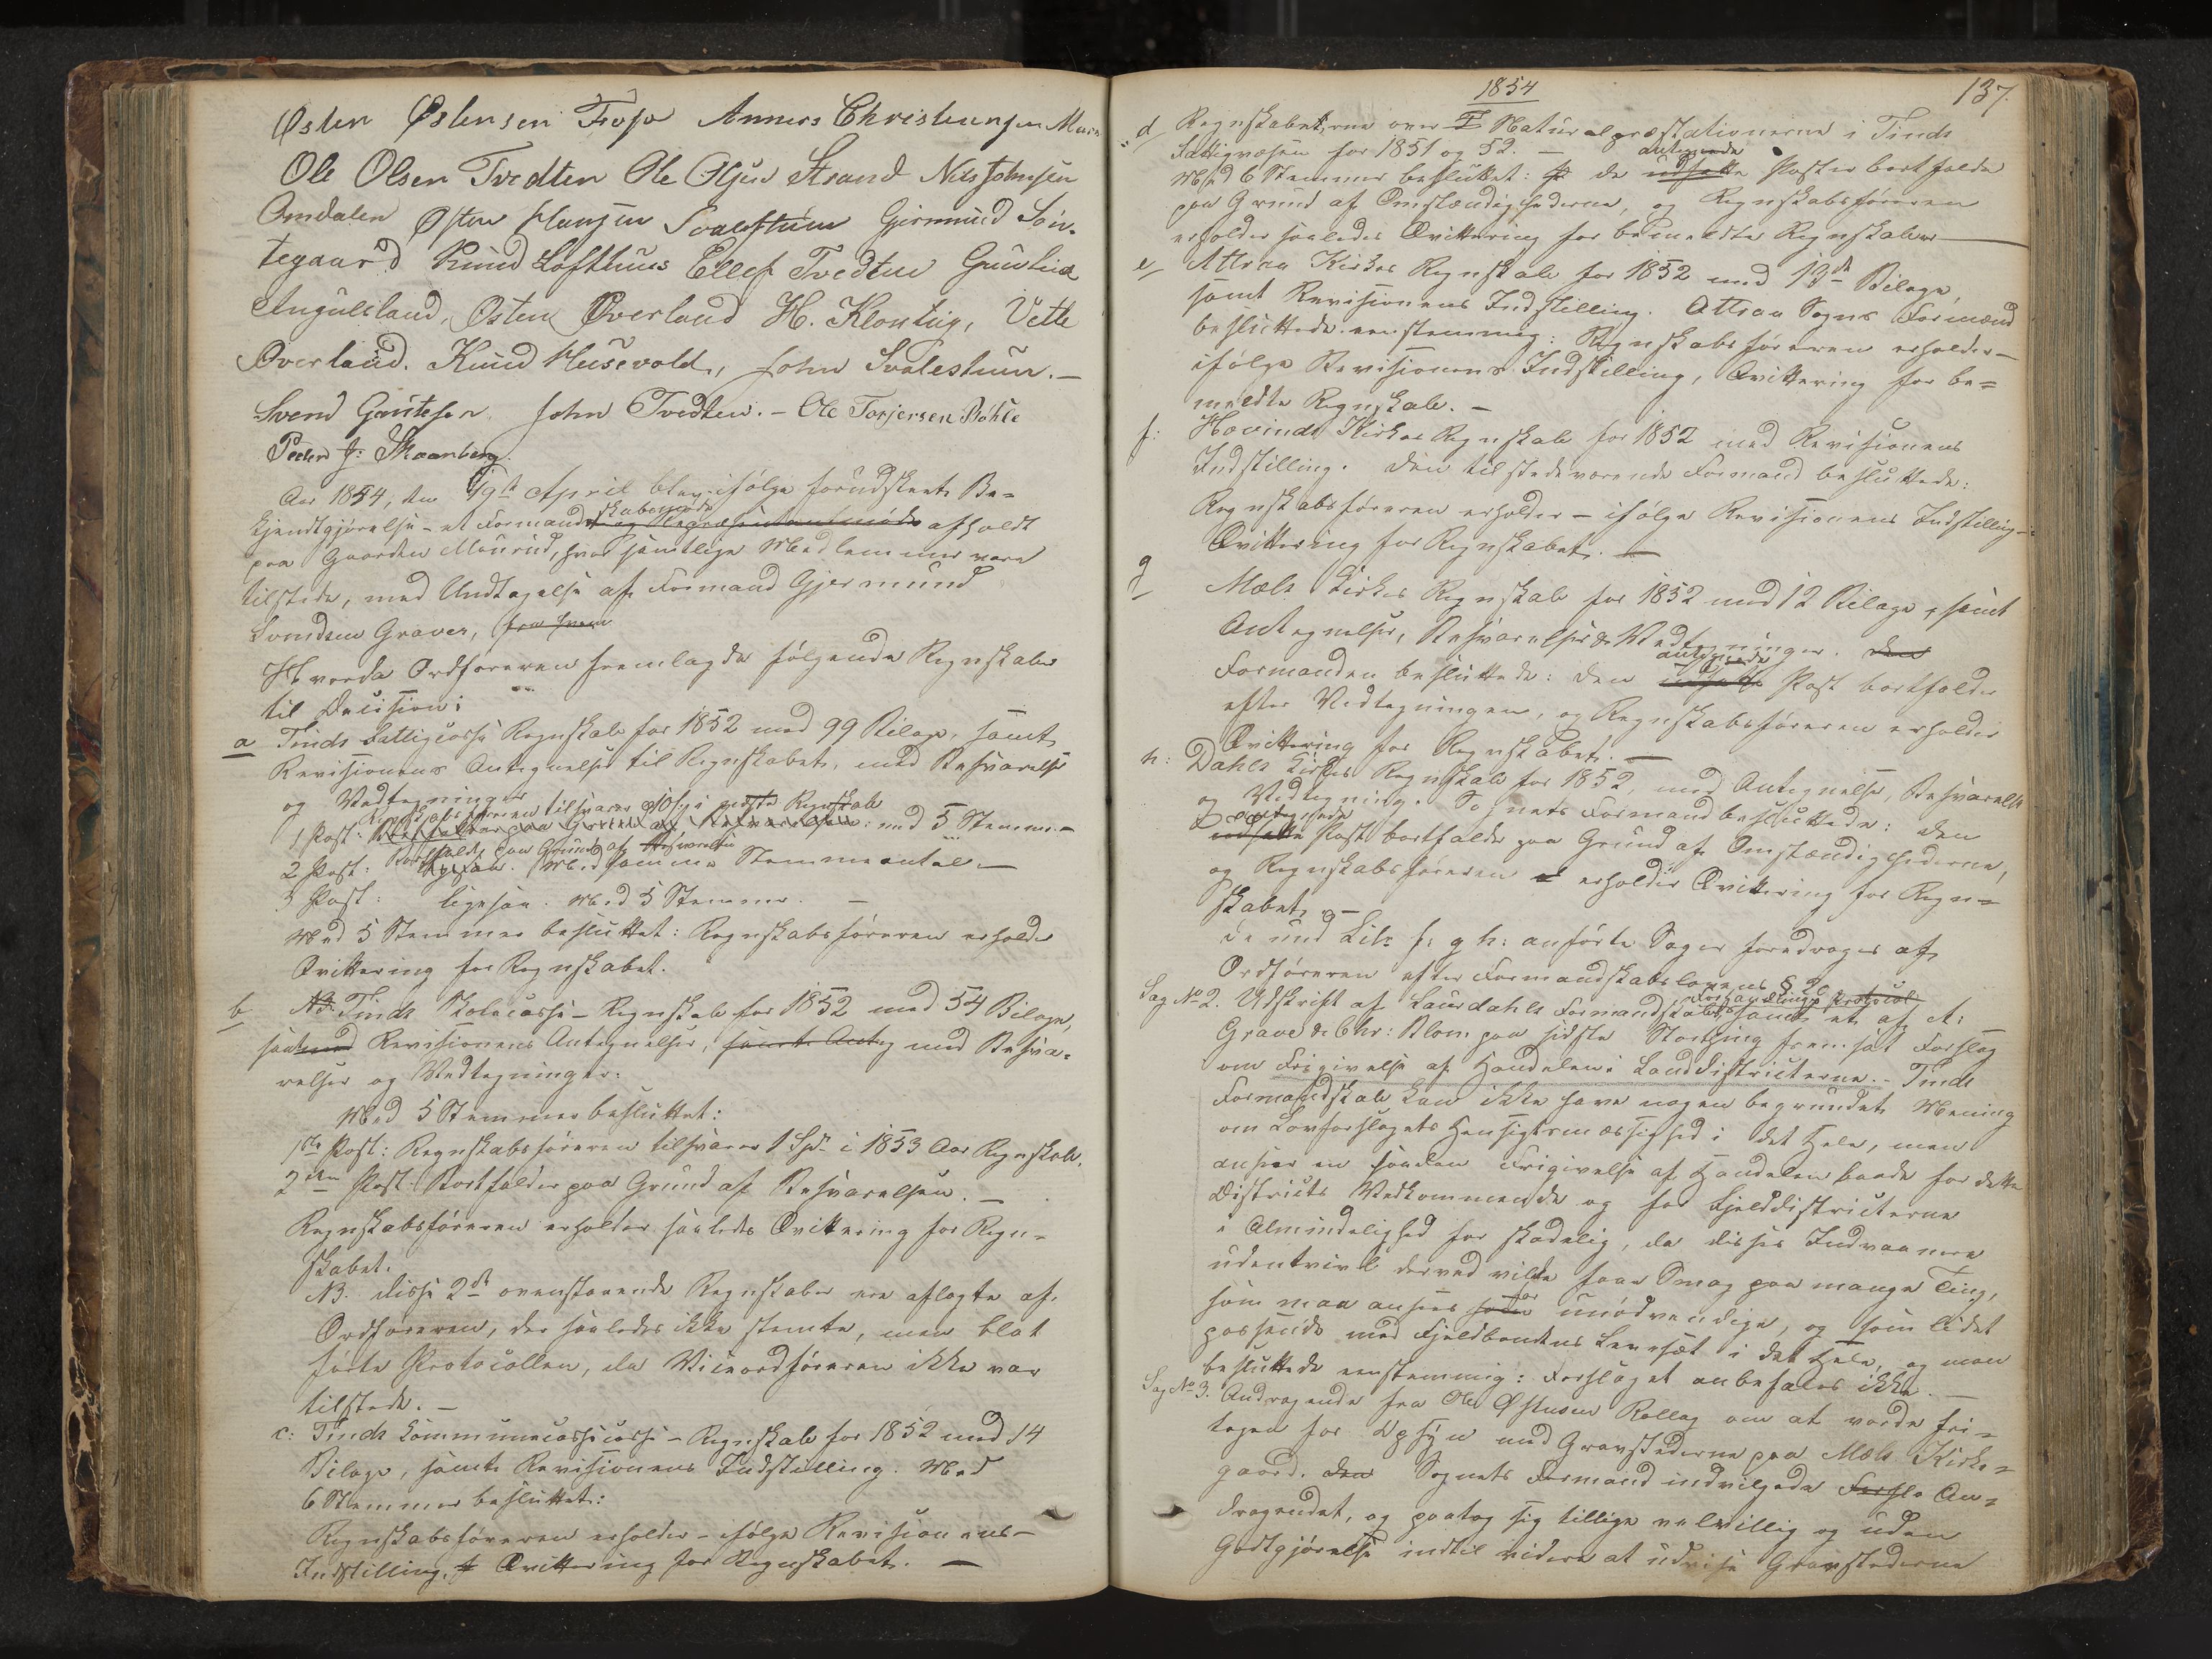 Østen Østensen Froso Anners Christensen Mære
Ole Olsen Tvedten Ole Oljus Strand Nils Johnsen
Omdalen Østen Hansen Svalestuen Giermund Søn-
tegaard Knud Lofthuus Ellef Tvedten Gunleik
Angulsland, Østen Øverland H. Klonteig, Vetle
Overland. Knud Husevold, John Svalestuen. —
Svend Gautesen. John Tvedten. — Ole Torjersen Bøhle
Peder J: Skaarberg.
Aar 1854, den 19de April blev ifølge forudskeet Be-
kjendtgjørelse – et Formandskabsmøde afholdt
paa Gaarden Maurud, hvor samtlige Medlemmer vare
tilstede, med Undtagelse af Formand Gjermund
Svendsen Graver, fra hvem
Hvorda Ordføreren fremlagde følgende Regnskaber
til Decision:
a Tinds Fattigcasse Regnskab for 1852 med 99 Bilage, samt
Revisionens Antegnelser til Regnskabet, med Besvarelse
og Vedtegninger
Regnskabsføreren tilsvarer i næste Regnskab
1 Post: med 5 Stemmer. –
Bortfalder paa Grund af Besvarelsen
2 Post: ligesaa. Med samme Stemmeantal. —
3 Post: ligesaa. Med 5 Stemmer. —
Med 5 Stemmer besluttet: Regnskabsføreren erholder
Qvittering for Regnskabet.
b No Tinds Skolecasse – Regnskab for 1852 med 54 Bilage,
samt med Revisionens Antegnelser, samt Anteg med Besva-
relser og Vedtegninger:
Med 5 Stemmer besluttet:
1ste Post: Regnskabsføreren tilsvarer 1 Spd. i 1853 Aars Regnskab.
2den Post: Bortfalder paa Grund af Besvarelsen. —
Regnskabsføreren erholder saaledes Qvittering for Regn-
skabet.
NB. disse 2de ovenstaaende Regnskaber ere aflagte af
Ordføreren, der saaledes ikke stemte, men blot
førte Protocollen, da Viceordføreren ikke var
tilstede. —
c: Tinds Communecassecasse – Regnskab for 1852 med 14
Bilage, samt Revisionens Indstilling. Med
6 Stemmer besluttet:
Regnskabsføreren erholder – ifølge Revisionens –
Indstilling, Qvittering for Regnskabet. —
1854
137.
d Regnskaberne over Naturalpræstationerne i Tinds
Fattigvæsen for 1851 og 52. —
antegnede
Med 6 Stemmer besluttet: de udsatte Poster bortfalde
paa Grund af Omstændighederne, og Regnskabsføreren
erholder saaledes Qvittering for bemeldte Regnskaber —
e Attraa Kirkes Regnskab for 1852 med 13de Bilage,
samt Revisionens Indstilling. Attraa Sogns Formænd
besluttede eenstemmig: Regnskabsføreren erholder –
ifølge Revisionens Indstilling, Qvittering for be-
meldte Regnskab. –
f: Hovinds Kirkes Regnskab for 1852 med Revisionens
Indstilling. Den tilstedeværende Formand besluttede:
Regnskabsføreren erholder – ifølge Revisionens Indstilling –
Qvittering for Regnskabet. —
g Mæls Kirkes Regnskab for 1852 med 12 Bilage, samt
Antegnelser, Besvarelser & Vedtegninger. Den
antegnede
Formanden besluttede: Den udsatte Post bortfalder
efter Vedtegningen, og Regnskabsføreren erholder
Qvittering for Regnskabet. —
h: Dahls Kirkes Regnskab for 1852, med Antegnelse, Besvarelse
og Vedtegning. Sognets Formand besluttede: den
antegnede
udsatte Post bortfalder paa Grund af Omstændighederne,
og Regnskabsføreren erholder Qvittering for Regn-
skabet. —
De und Litr: f: g h: anførte Sager foredroges af
Ordføreren efter Formandskabslovens § 26
Sag No 2. Udskrift af Laurdahls Formandskabs Forhandlings Protocol samt et af A:
Grave & Chr: Blom paa sidste Storthing fremsat Forslag
om Frigivelse af Handelen i Landdistricterne. – Tinds
Formandskab kan ikke have nogen begrundet Mening
om Lovforslagets Hensigtsmæssighed i det Hele, men
anseer en saadan Frigivelse af Handelen baade for dette
Districts Vedkommende og for Fjelddistricterne
i Almindelighed for skadelig, da disses Indvaanere
udentvivl derved vilde faae Smag paa mange Ting,
som maa ansees for unødvendige, og som lidet
passende med Fjeldbondens Levesæt i det Hele, og man
besluttede eenstemmig: Forslaget anbefales ikke. —
Sag No 3. Andragende fra Ole Østensen Rollag om at vorde fri-
tagen for Opsyn med Gravstederne paa Mæls Kirke-
gaard. Den Sognets Formand indvilgede Forsla An-
dragendet, og paatog sig tillige velvillig og uden
Godtgjørelse indtil videre at udvise Gravstederne